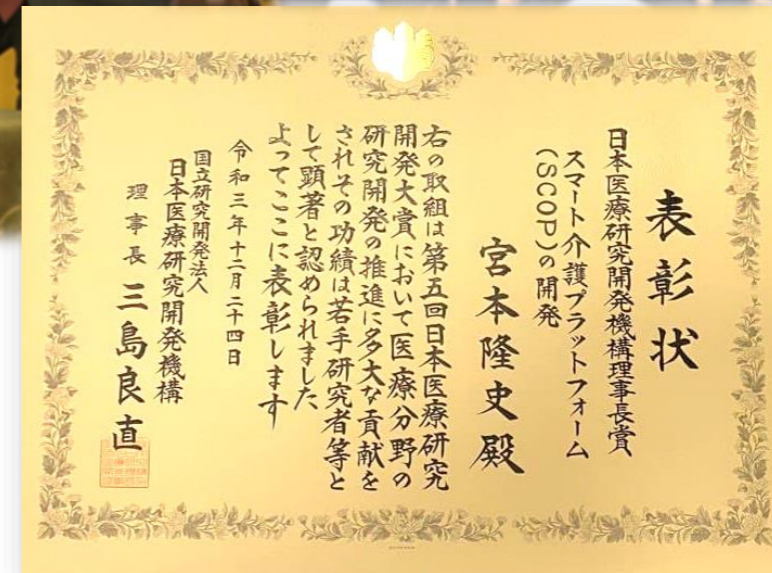 表彰状
日本医療研究開発機構理事長賞
スマート介護プラットフォーム
(SCOP)の開発
宮本隆史殿
右の取組は第五回日本医療研究
開発大賞において医療分野の
研究開発の推進に多大な貢献を
されその功績は若手研究者等と
して顕著と認められました
よってここに表彰します
令和三年十二月二十四日
国立研究開発法人
日本医療研究開発機構
理事長 三島良直